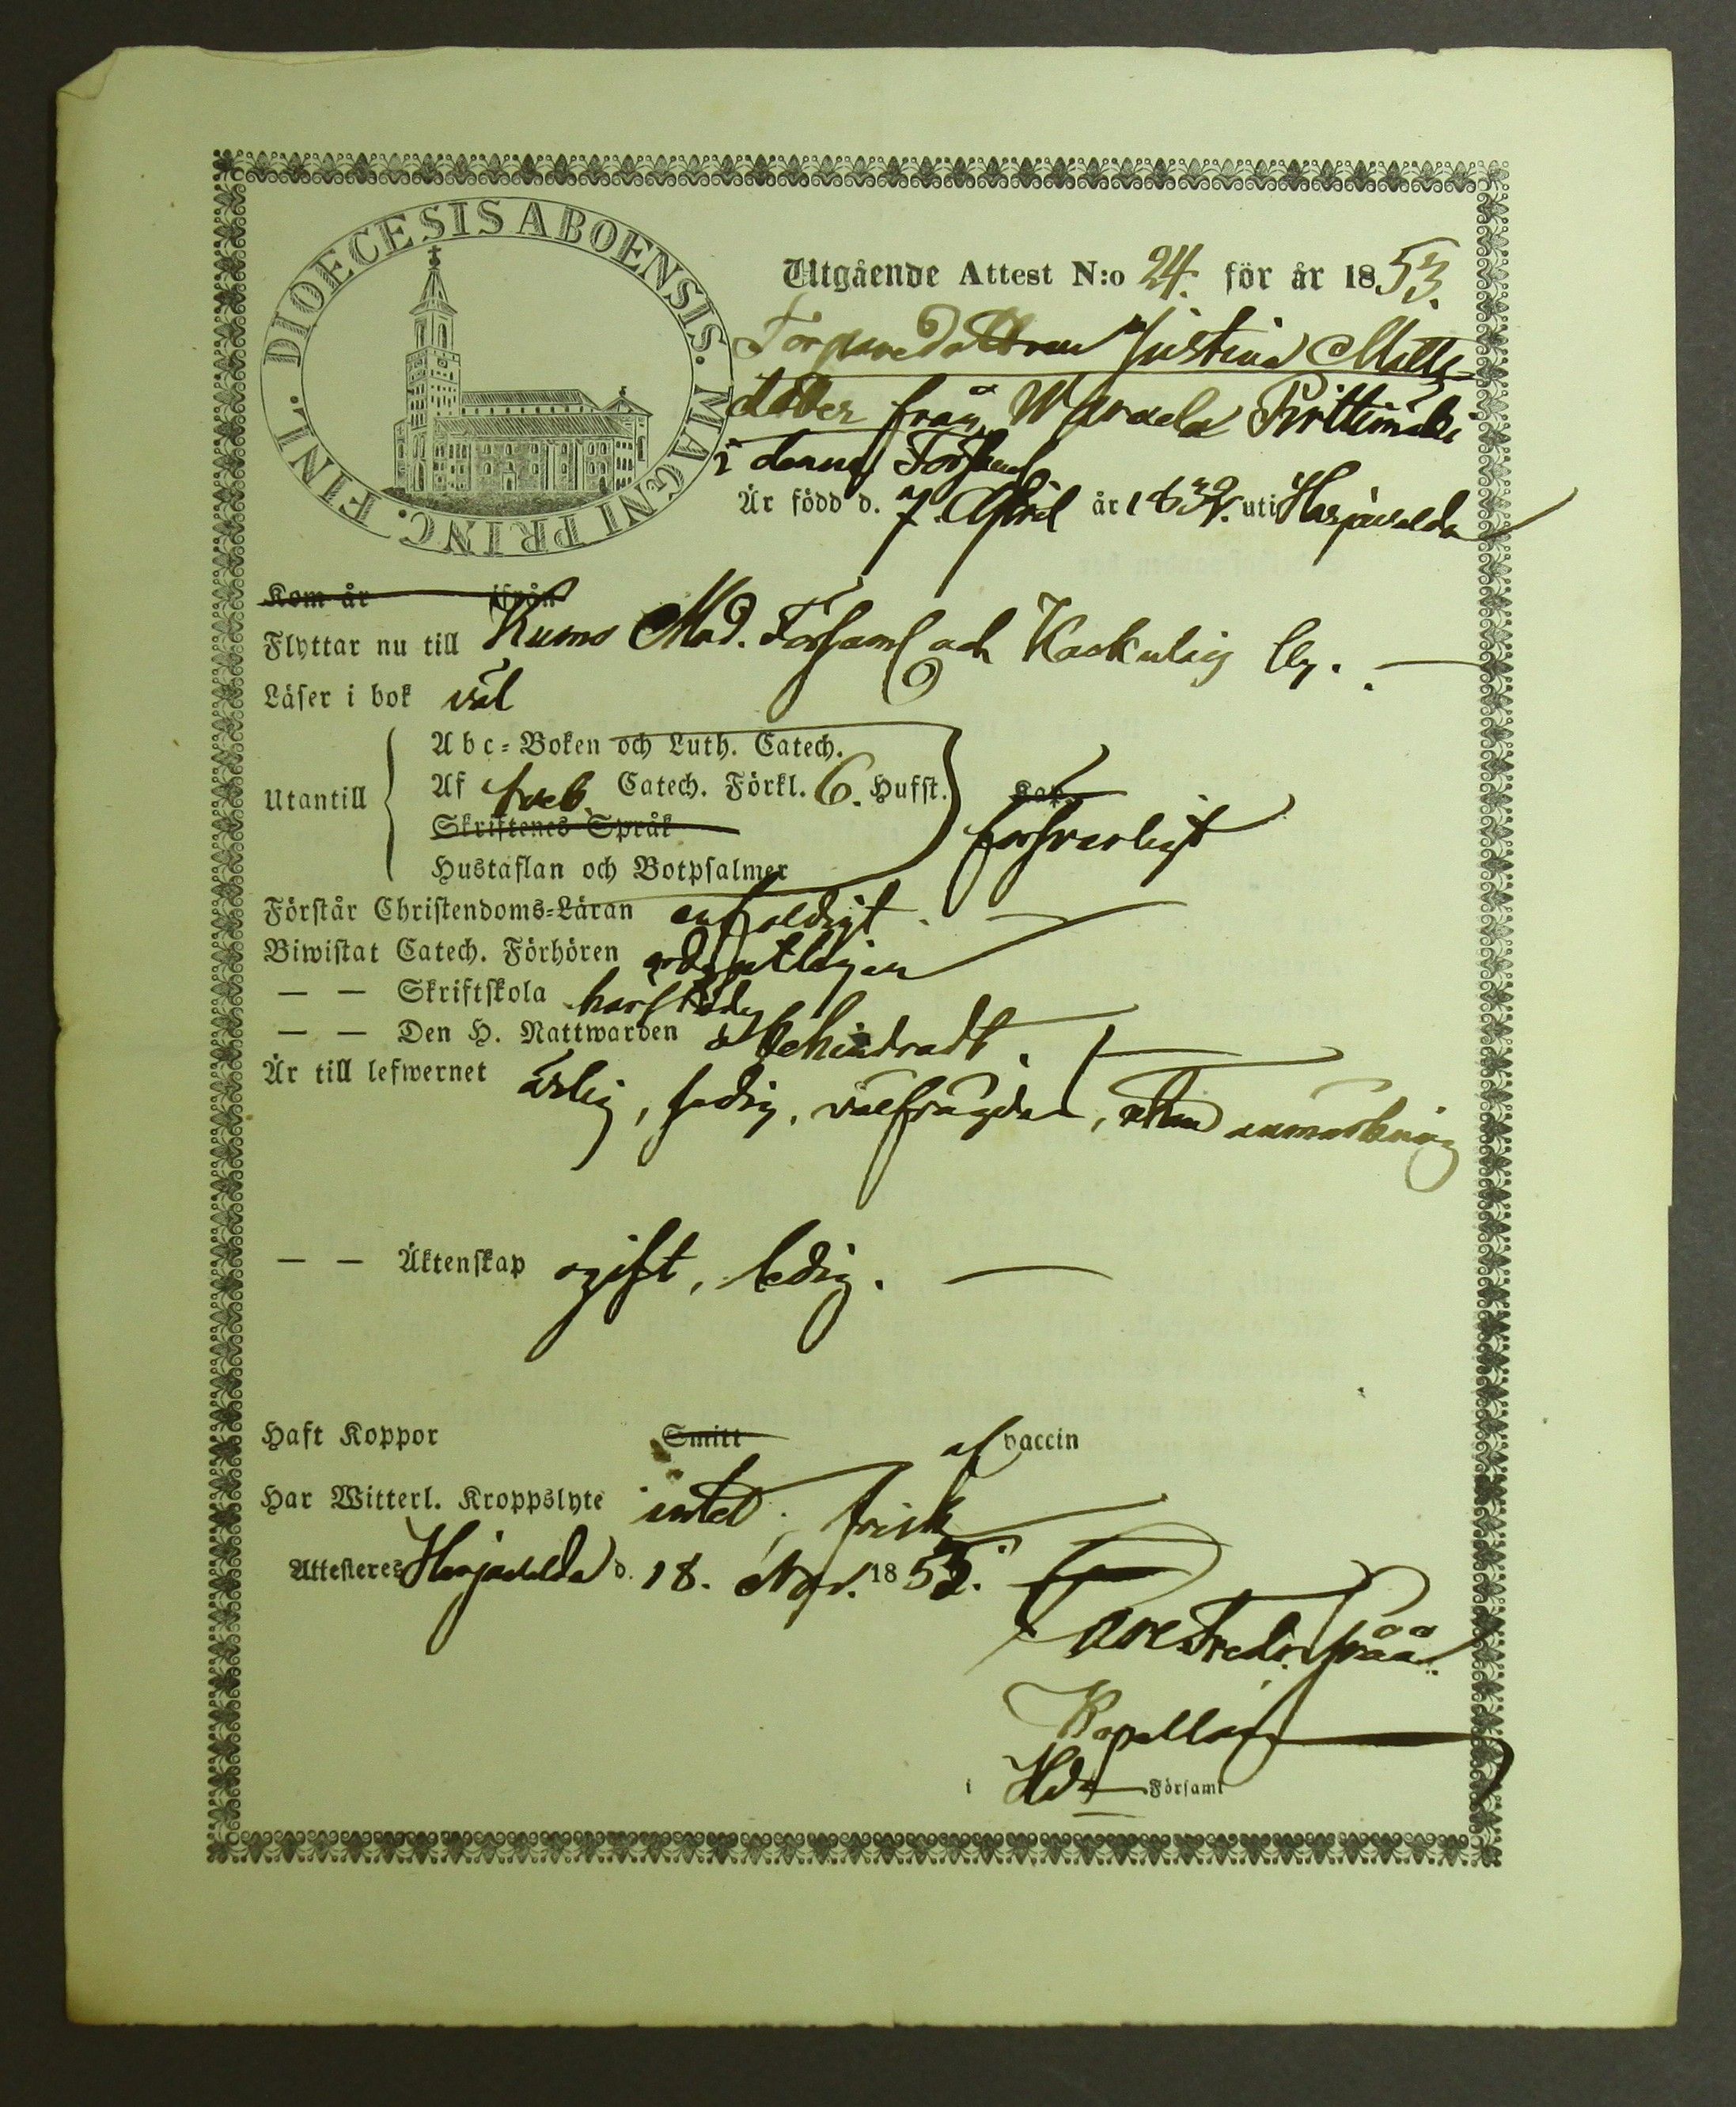 FINL. DIOECESIS ABOENSIS. MAGNI PRINC.
Utgående Attest N:o 24. för år 1853.
Torparedottren Justina Matts-
dotter från Warvala Pirttimäki
i denna Församl
Är född d. 7. April år 1832. uti Harjavalda
Kom år ifrån
Flyttar nu till Kumo Mod. Församl och Kaokulig by.
Läser i bok väl
Abc-Boken och Luth. Catech.
Utantill Af Sveb. Catech. Förkl. 6. Hufst. Kap.
Skriftenes Språk försvarligt
Hustaflan och Botpsalmer
Förstår Christendoms-Läran enfaldigt.
Biwistat Catech. Förhören ordentligen
— — Skriftskola härstädes
— — Den H. Nattwarden obehindradt.
Är till lefwernet ärlig, sedig, välfrägdad, utan anmärkning
— — Äktenskap ogift, ledig.
Haft Koppor Smitt af vaccin
Har Witterl. Kroppslyte intet; frisk
Attesteres Harjavalda d. 18. Nov. 1853.
Fredr.
Kapellan
i Hda Församl